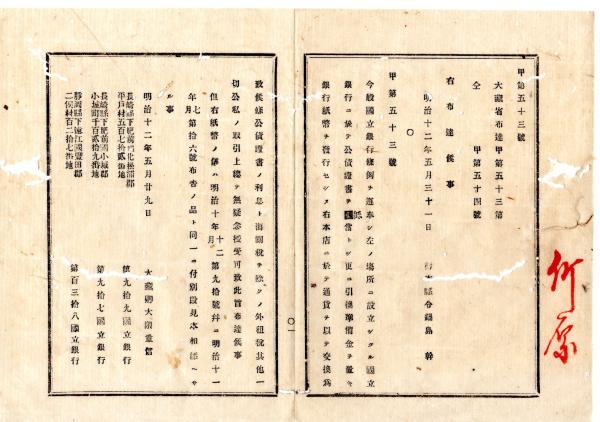 甲第五十三号
大藏省布達甲第五十三第
仝 甲第五十四號
右布達候事
明治十二年五月三十一日 縣令鍋島 幹
〇
甲第五十三號
今般國立銀行條例ヲ遵奉シ左ノ場所ニ設立シタル國立
銀行ニ於テ公債證書ヲ抵當トシ更ニ引換準備金ヲ置キ
銀行紙幣ヲ發行セシメ右本店ニ於テ通貨ヲ以テ交換爲
致候條公債證書ノ利息ト海關税ヲ除クノ外租税其他一
切公私ノ取引上總テ無疑念授受可致此旨布達候事
但右紙幣ノ儀ハ明治十年十二月第九拾號幷ニ明治十一
年七月第拾六號布告ノ品ト同一ニ付別段見本相添ヘサ
ル事
明治十二年五月廿九日 大藏卿大隈重信
長崎縣下肥前國北松浦郡
平戸村五百七拾貳番地 第九十九國立銀行
長崎縣下肥前國小城郡
小城町千百貳拾九番地 第九十七國立銀行
靜岡縣下遠江國豐田郡
二俣村百二十七番地 第百三拾八國立銀行
〇一
竹原